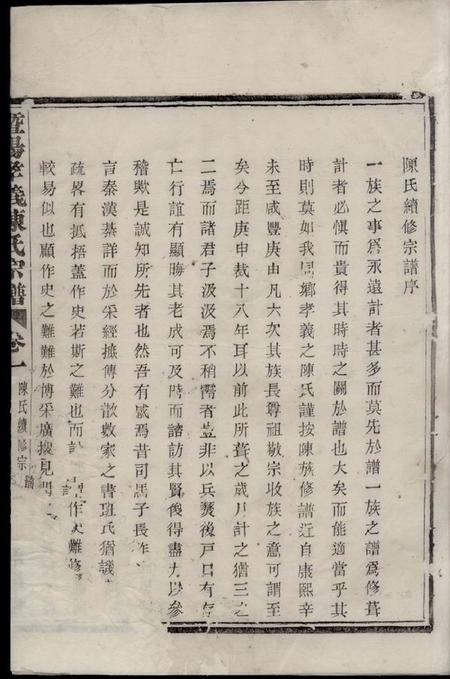 陳氏續修宗譜序
一族之事爲永遠計者甚多而莫先於譜一族之譜爲修葺
計者必愼而貴得其時時之關於譜也大矣而能適當乎其
時則莫如我同鄉孝義之陳氏謹按陳族修譜近自康熙辛
未至咸豐庚申凡六次其族長尊祖敬宗收族之意可謂至
矣今距庚申裁十八年耳以前此所葺之歲月計之猶三之
二焉而諸君子汲汲焉不稍濡者豈非以兵燹後戸口有存
亡行誼有顯晦其老成可及時而諮訪其賢俊得盡力以參
稽歟是誠知所先者也然吾有感焉昔司馬子長作
言秦漢綦詳而於采經摭傳分散數家之書班氏猶譏
疏畧有抵捂蓋作史若斯之難也而 作史難修
較易似也顧作史之難難於博采廣搜見聞
暨陽孝義陳氏宗譜 卷一 陳氏續修宗譜